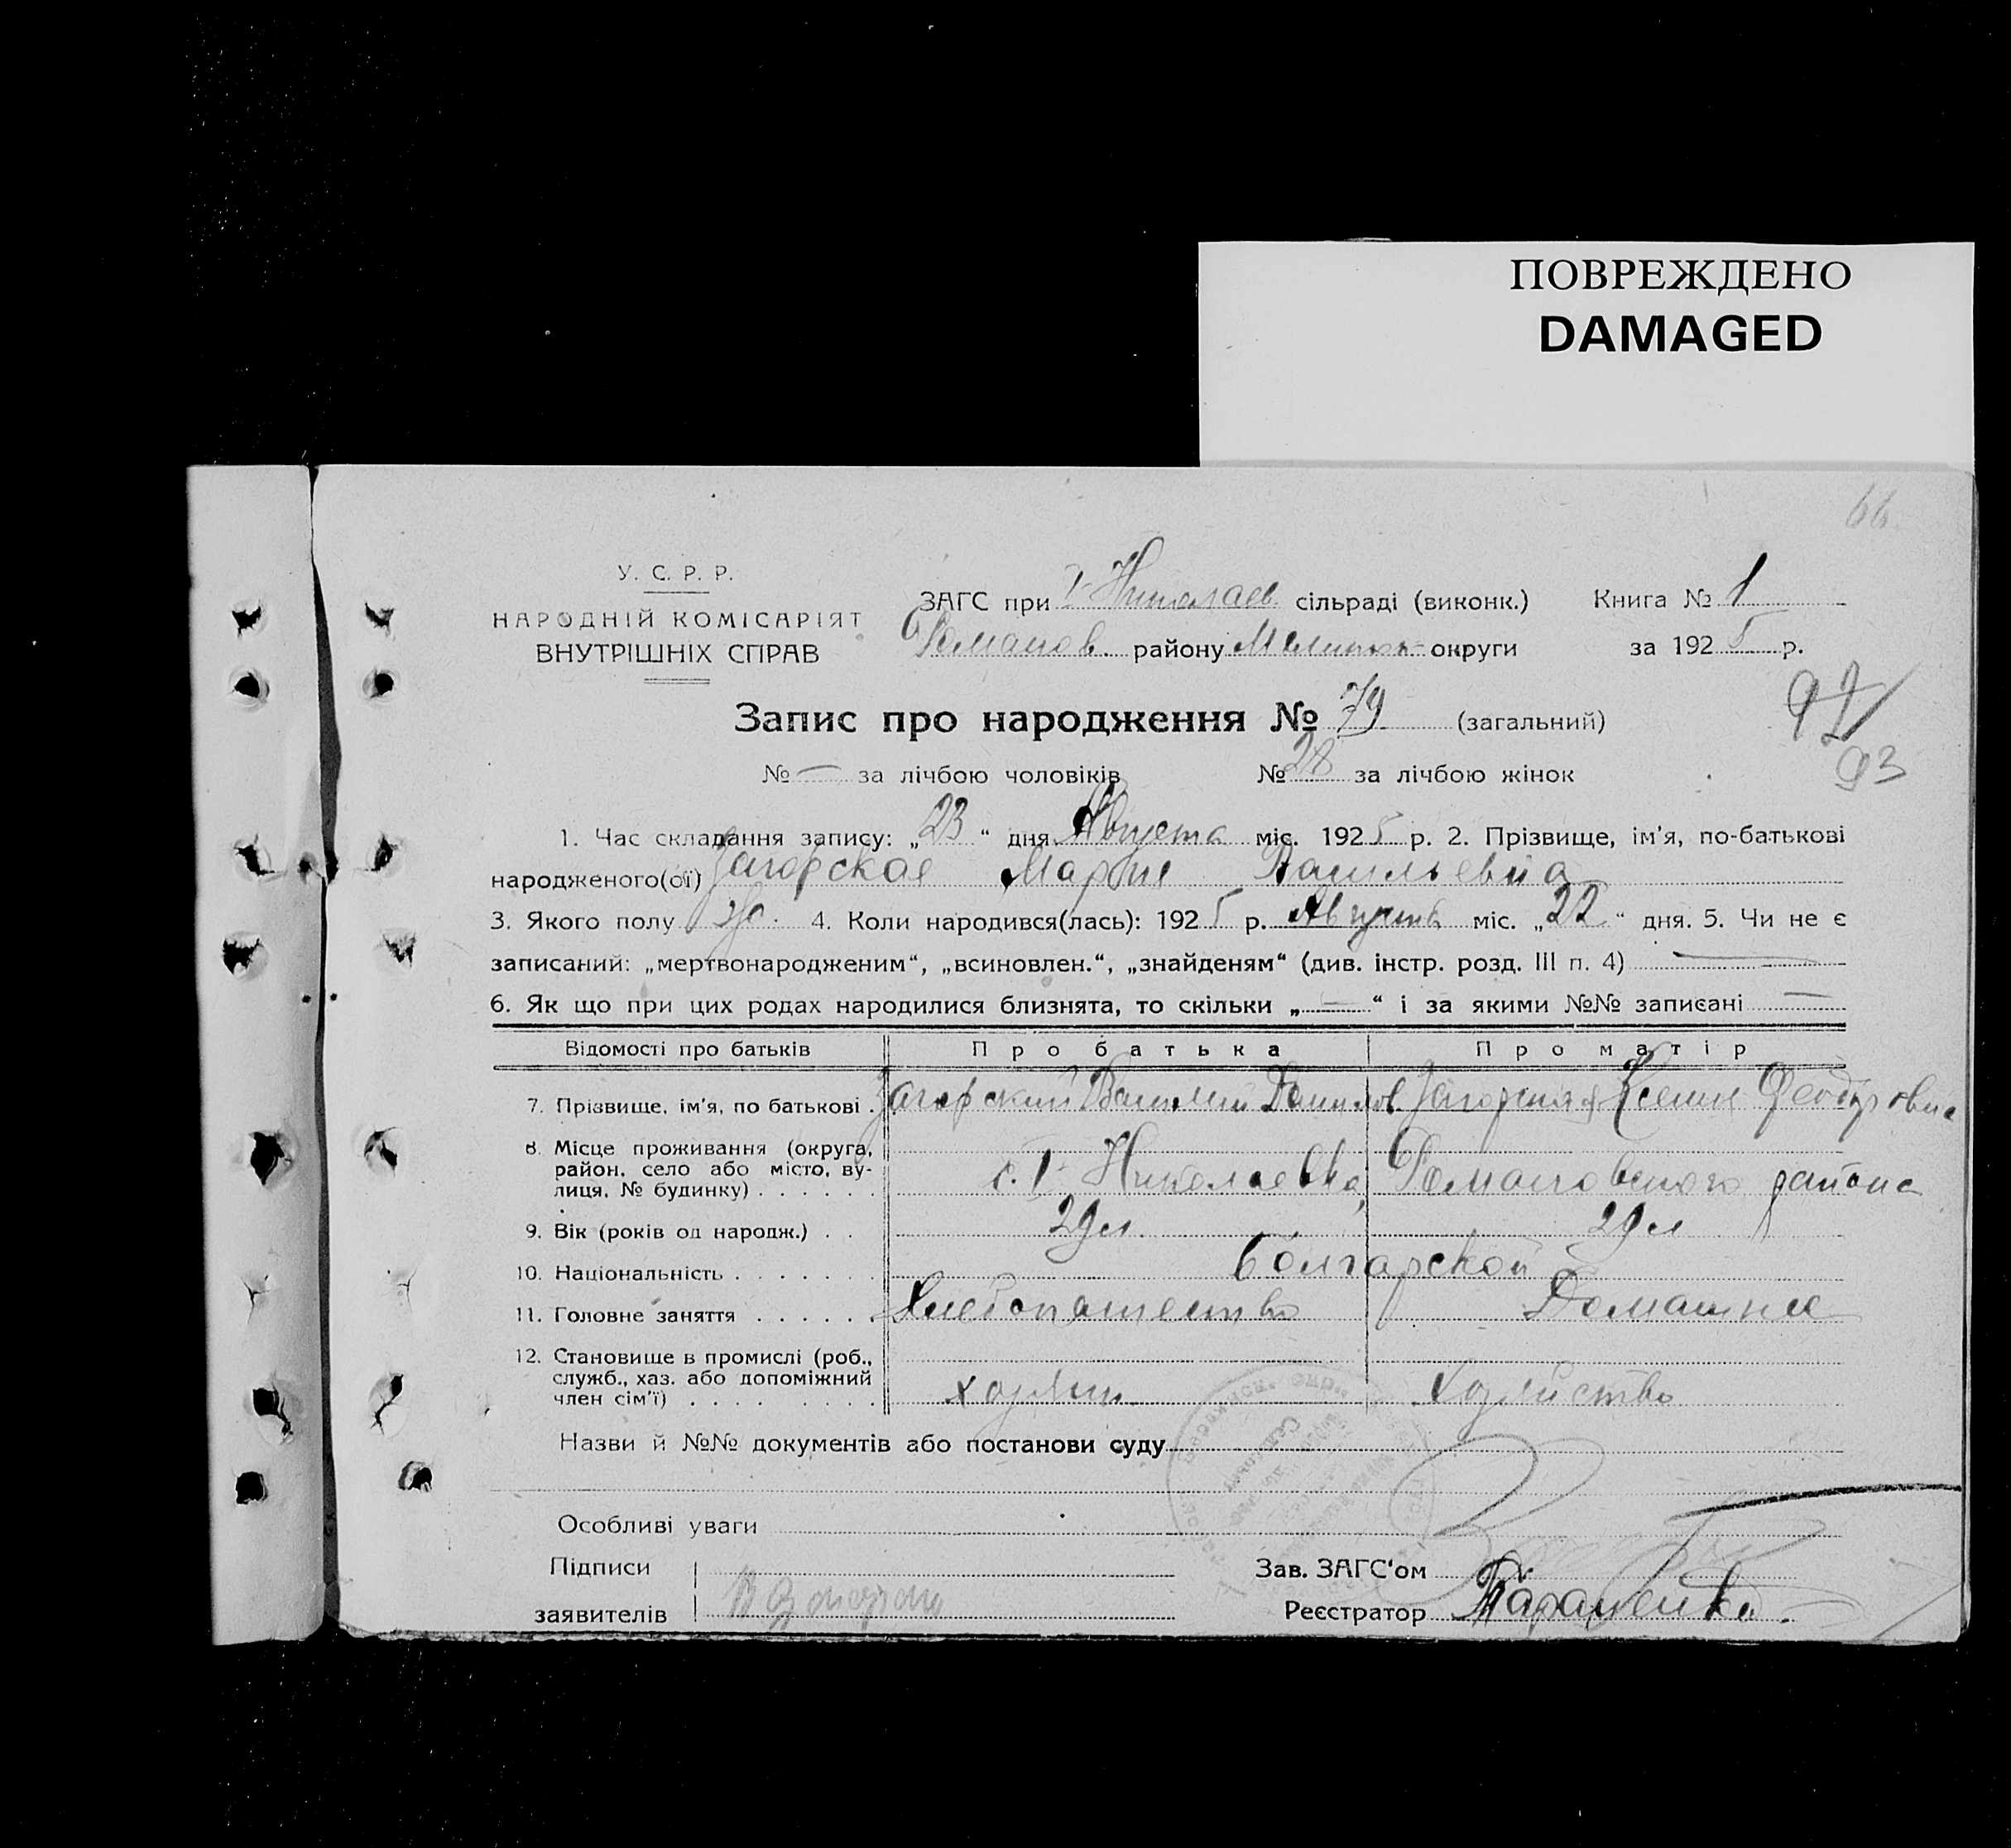 ПОВРЕЖДЕНО
DAMAGED
66
У. С. Р. Р.
НАРОДНІЙ КОМІСАРІЯТ
ВНУТРІШНІХ СПРАВ
ЗАГС при I Николаев сільраді (виконк.) Книга № 1
Романов. району округи за 1925 р.
Запис про народження № 79 (загальний)
92
93
№ — за лічбою чоловіків № 28 за лічбою жінок
1. Час складання запису: „23“ дня Августа міс. 1925 р. 2. Прізвище, ім'я, по-батькові
народженого(ої) Загорская Мария Васильевна
3. Якого полу ж. 4. Коли народився(лась): 1925 р. Августа міс. „22“ дня. 5. Чи не є
записаний: „мертвонародженим“, „всиновлен.“, „знайденям“ (див. інстр. розд. III п. 4) —
6. Як що при цих родах народилися близнята, то скільки „—“ і за якими №№ записані —
Відомості про батьків Про батька Про матір
7. Прізвище, ім'я, по батькові . Загорский Василий Данилов. Загорская Ксения Феодоровна
8. Місце проживання (округа,
район, село або місто, ву-
лиця, № будинку) . . . . . . с. I Николаевка, Романовского района
9. Вік (років од народж.) . . 29 л. 29 л
10. Національність . . . . . . . болгарской
11. Головне заняття . . . . . . Хлебопашество Домашнее
12. Становище в промислі (роб.,
служб., хаз. або допоміжний
член сім'ї) . . . . . . . . хозяин Хозяйство
Назви й №№ документів або постанови суду
Особливі уваги
Підписи
заявителів
Зав. ЗАГС'ом
Реєстратор Тараненко.